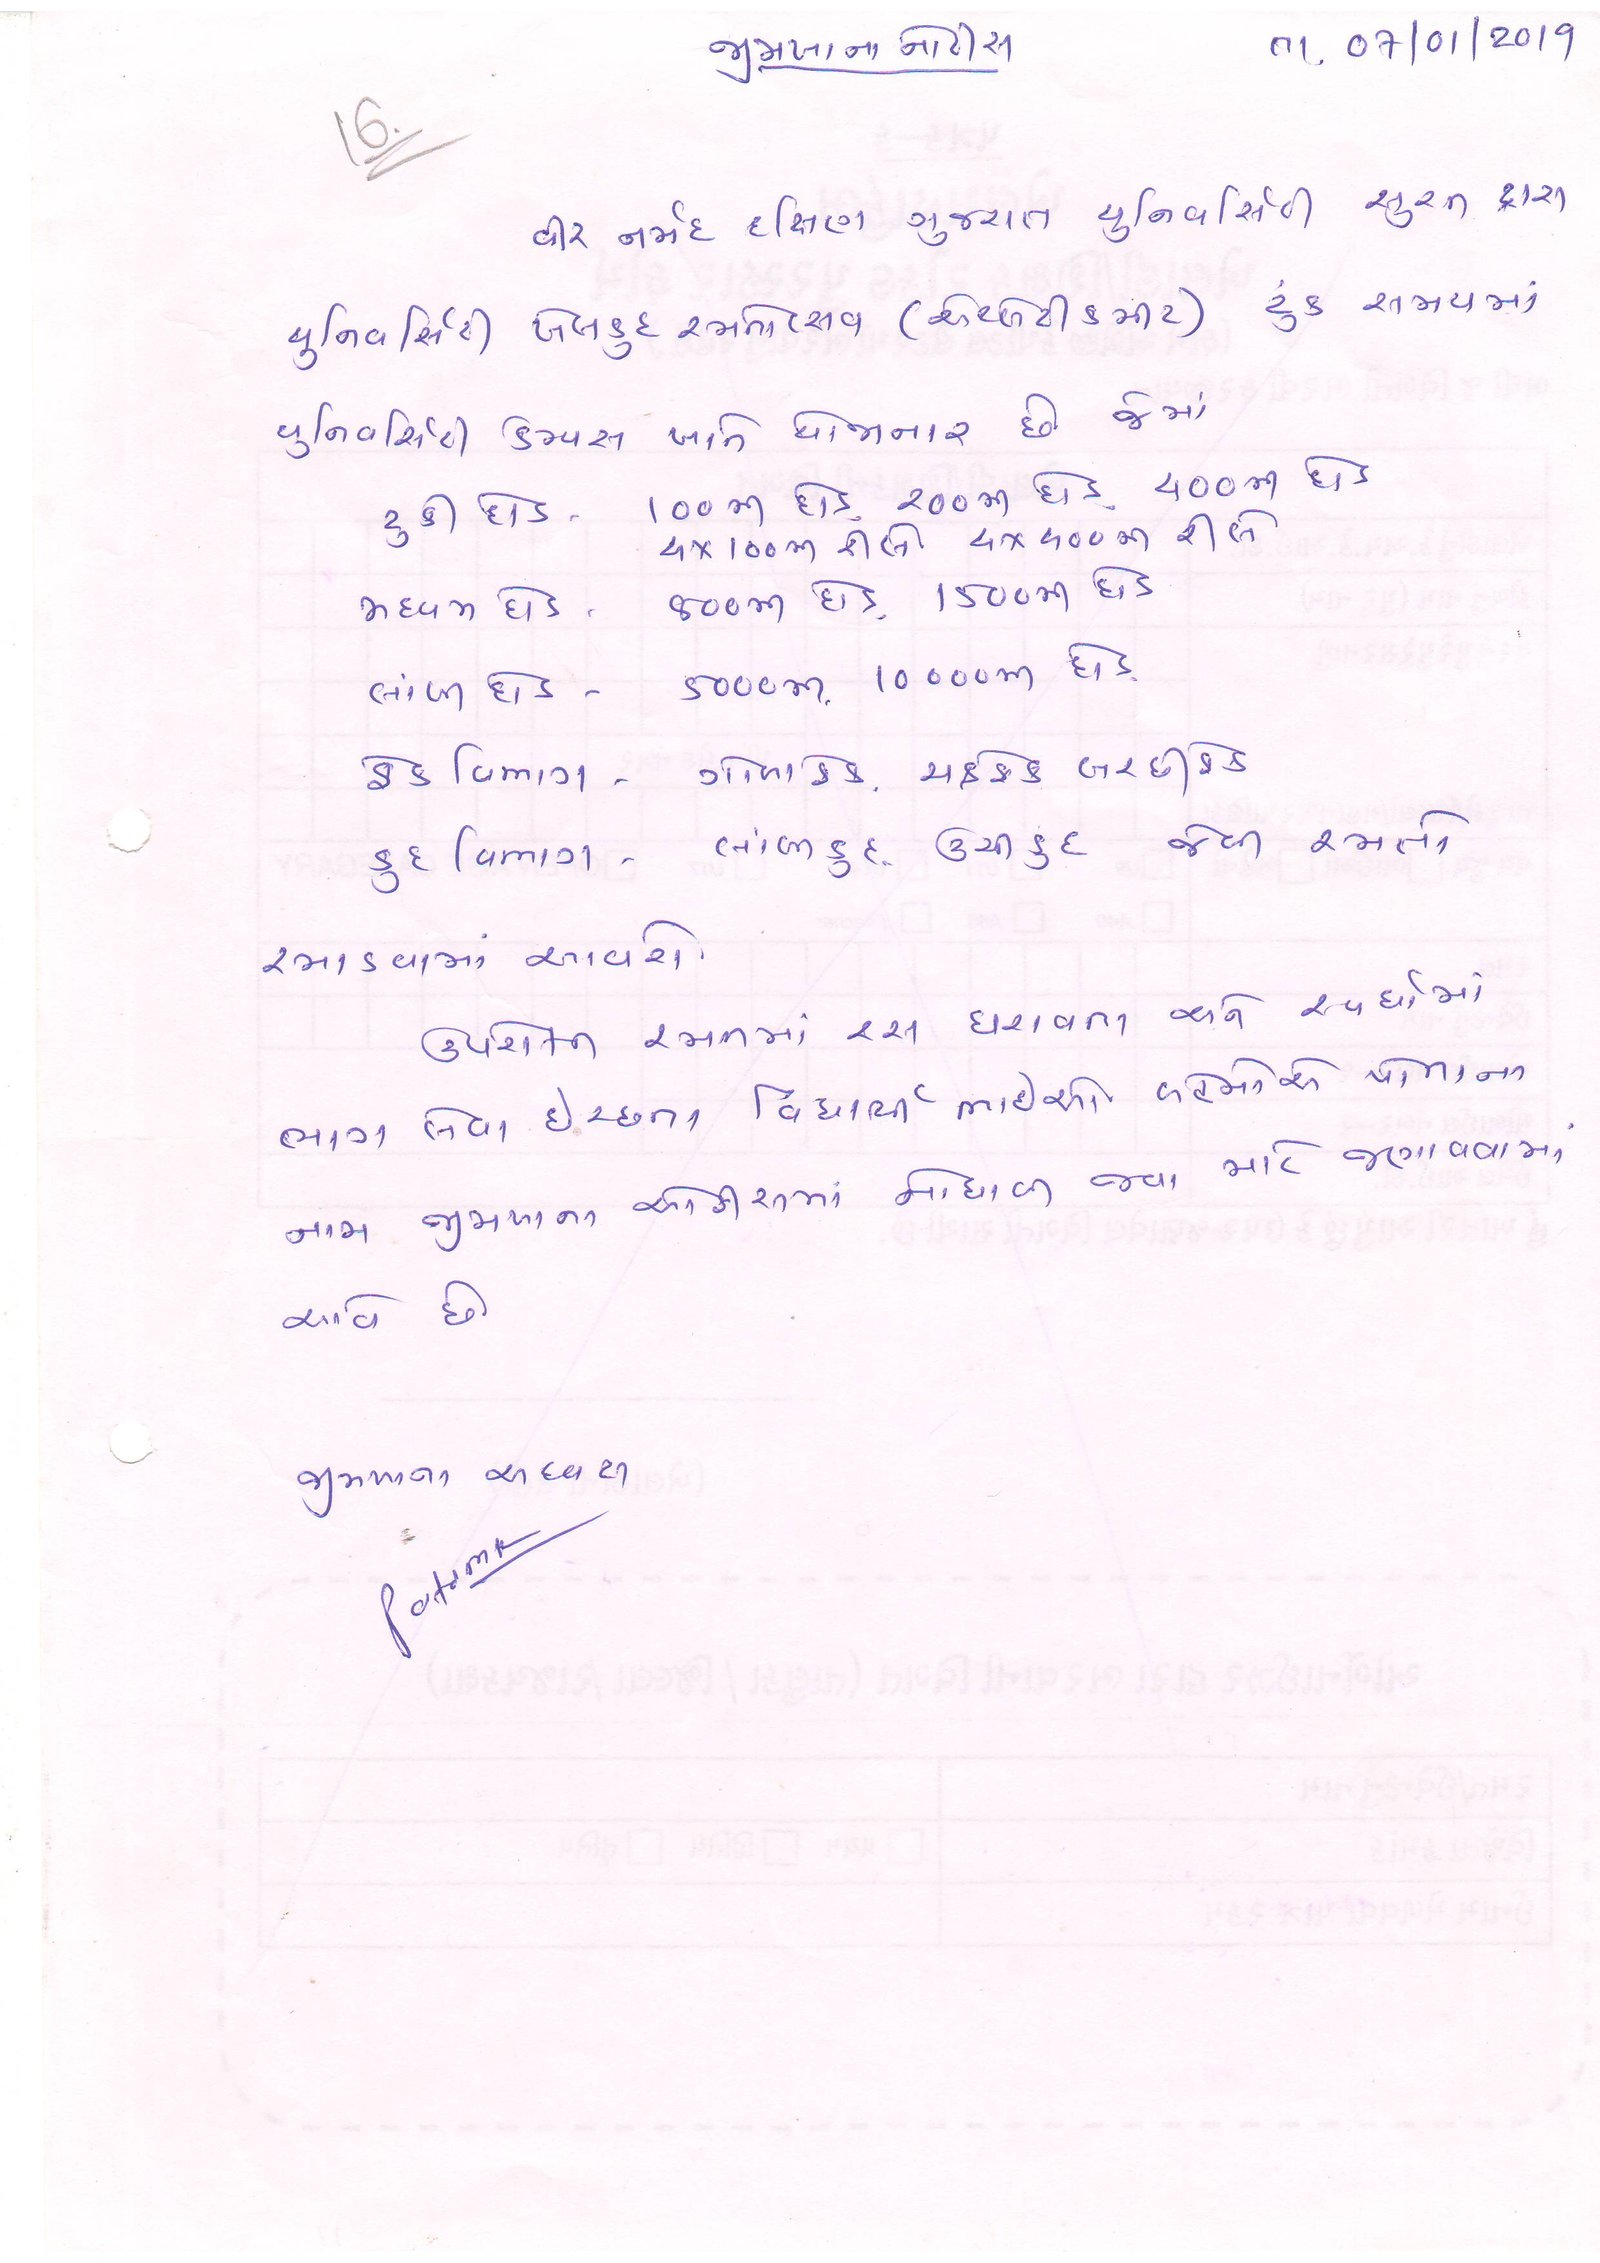 જીમખાના નોટીસ
તા. 07/01/2019
16.
વીર નર્મદ દક્ષિણ ગુજરાત યુનિવર્સિટી સુરત દ્વારા
યુનિવર્સિટી ખેલકુદ રમતોત્સવ (એથ્લેટીકમીટ) ટુંક સમયમાં
યુનિવર્સિટી કેમ્પસ ખાતે યોજાનાર છે જેમાં
ટુકી દોડ - 100મી દોડ, ૨00મી દોડ, ૪00મી દોડ
૪x100મી રીલે ૪x૪00મી રીલે
મધ્યમ દોડ - ૮00મી દોડ, 1૫00મી દોડ
લાંબી દોડ - ૫000મી, 10000મી દોડ
ફેક વિભાગ - ગોળાફેક, ચક્રફેક બરછીફેક
કુદ વિભાગ - લાંબીકુદ, ઉચીકુદ જેવી રમતો
રમાડવામાં આવશે.
ઉપરોક્ત રમતમાં રસ ધરાવતા અને સ્પર્ધામાં
ભાગ લેવા ઈચ્છતા વિદ્યાર્થી ભાઈઓ બહેનોએ પોતાના
નામ જીમખાના ઓફીસમાં નોંધાવી જવા માટે જણાવવામાં
આવે છે
જીમખાના અધ્યક્ષ